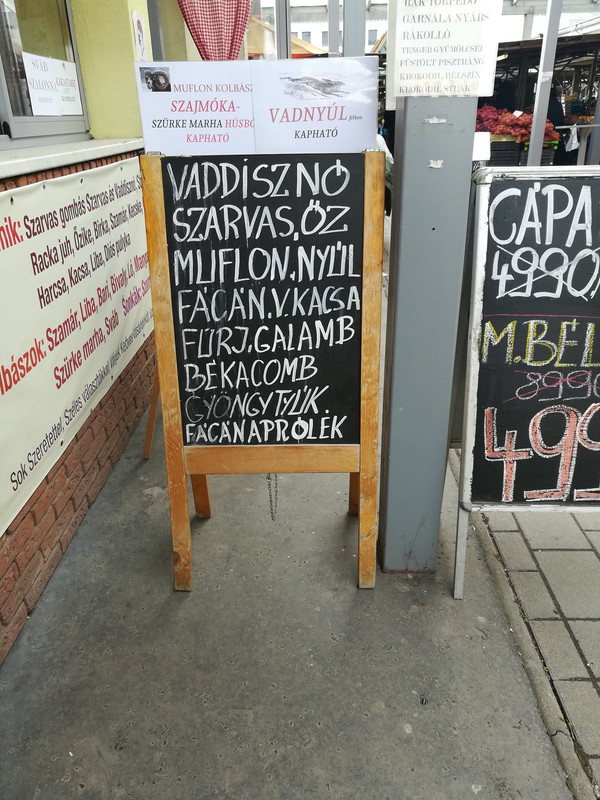 SVÁB
SZALONNA
RÁK TORPEDÓ
GARNÉLA NYÁRS
RÁKOLLÓ
TENGER GYÜMÖLCSEI
FÜSTÖLT PISZTRÁNG
KROKODIL BÉLSZÍN
KROKODIL STEAK
MUFLON KOLBÁSZ
SZAJMÓKA-
SZÜRKE MARHA HÚSBÓ
KAPHATÓ
VADNYÚL
KAPHATÓ
VADDISZNÓ
SZARVAS,ŐZ
MUFLON,NYÚL
FÁCÁN,V.KACSA
FÜRJ,GALAMB
BÉKACOMB
GYÖNGYTYÚK
FÁCÁNAPRÓLÉK
nik: Szarvas gombás Szarvas és Vaddisznó, Sza
Racka juh, Őzike, Birka, Szamár, Kecske
Harcsa, Kacsa, Liba, Diós pulyka
lbászok: Szamár, Liba, Bari, Bivaly, Ló, Mang
Szürke marha, Sváb
Sok Szeretettel, Széles Választékkal Várjuk Kedves
CÁPA
4990
M.BÉL
3990
499